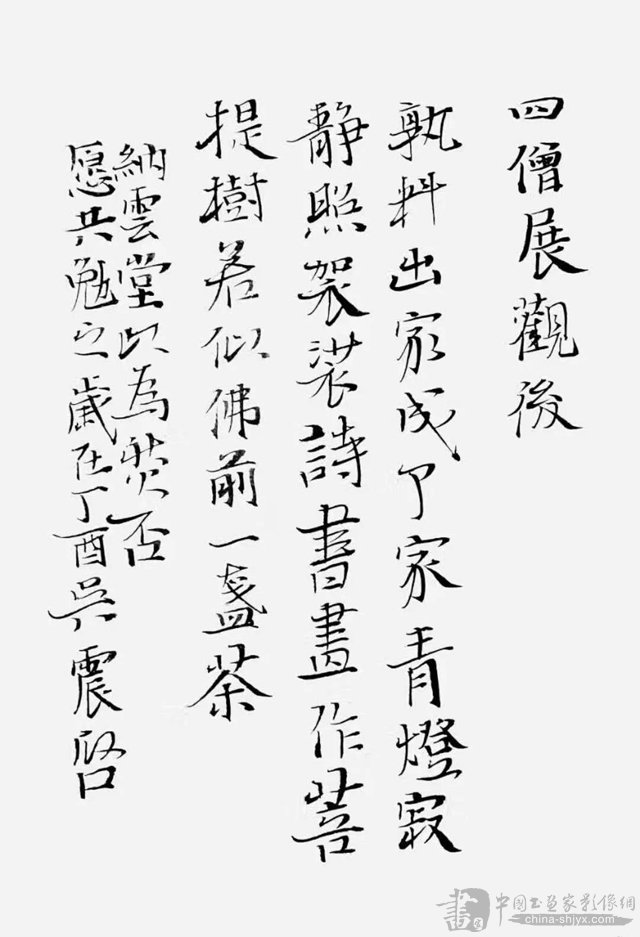 四僧展觀後
孰料出家成了家青燈寂
靜照袈裟詩書畫作菩
提樹若似佛前一盞茶
納雲堂以為然否
愿共勉之歲在丁酉吳震啓
中国书画家影像網
china-shjyx.com